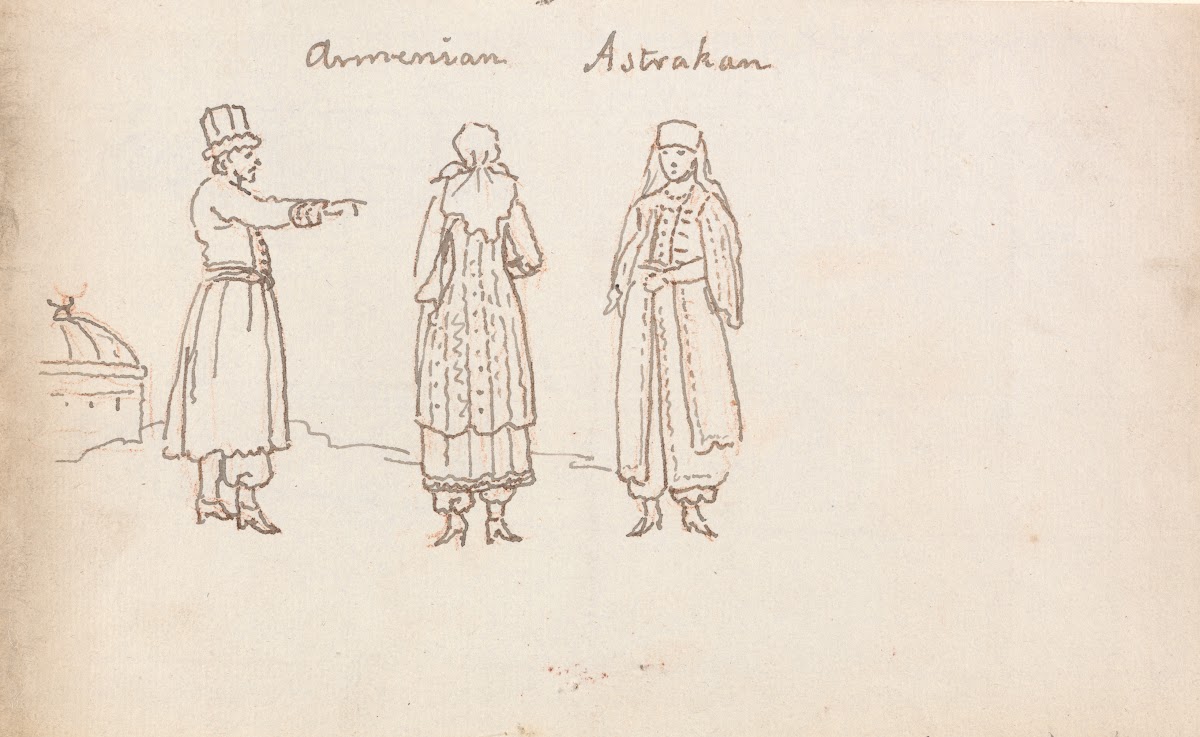 Armenian Astrakan